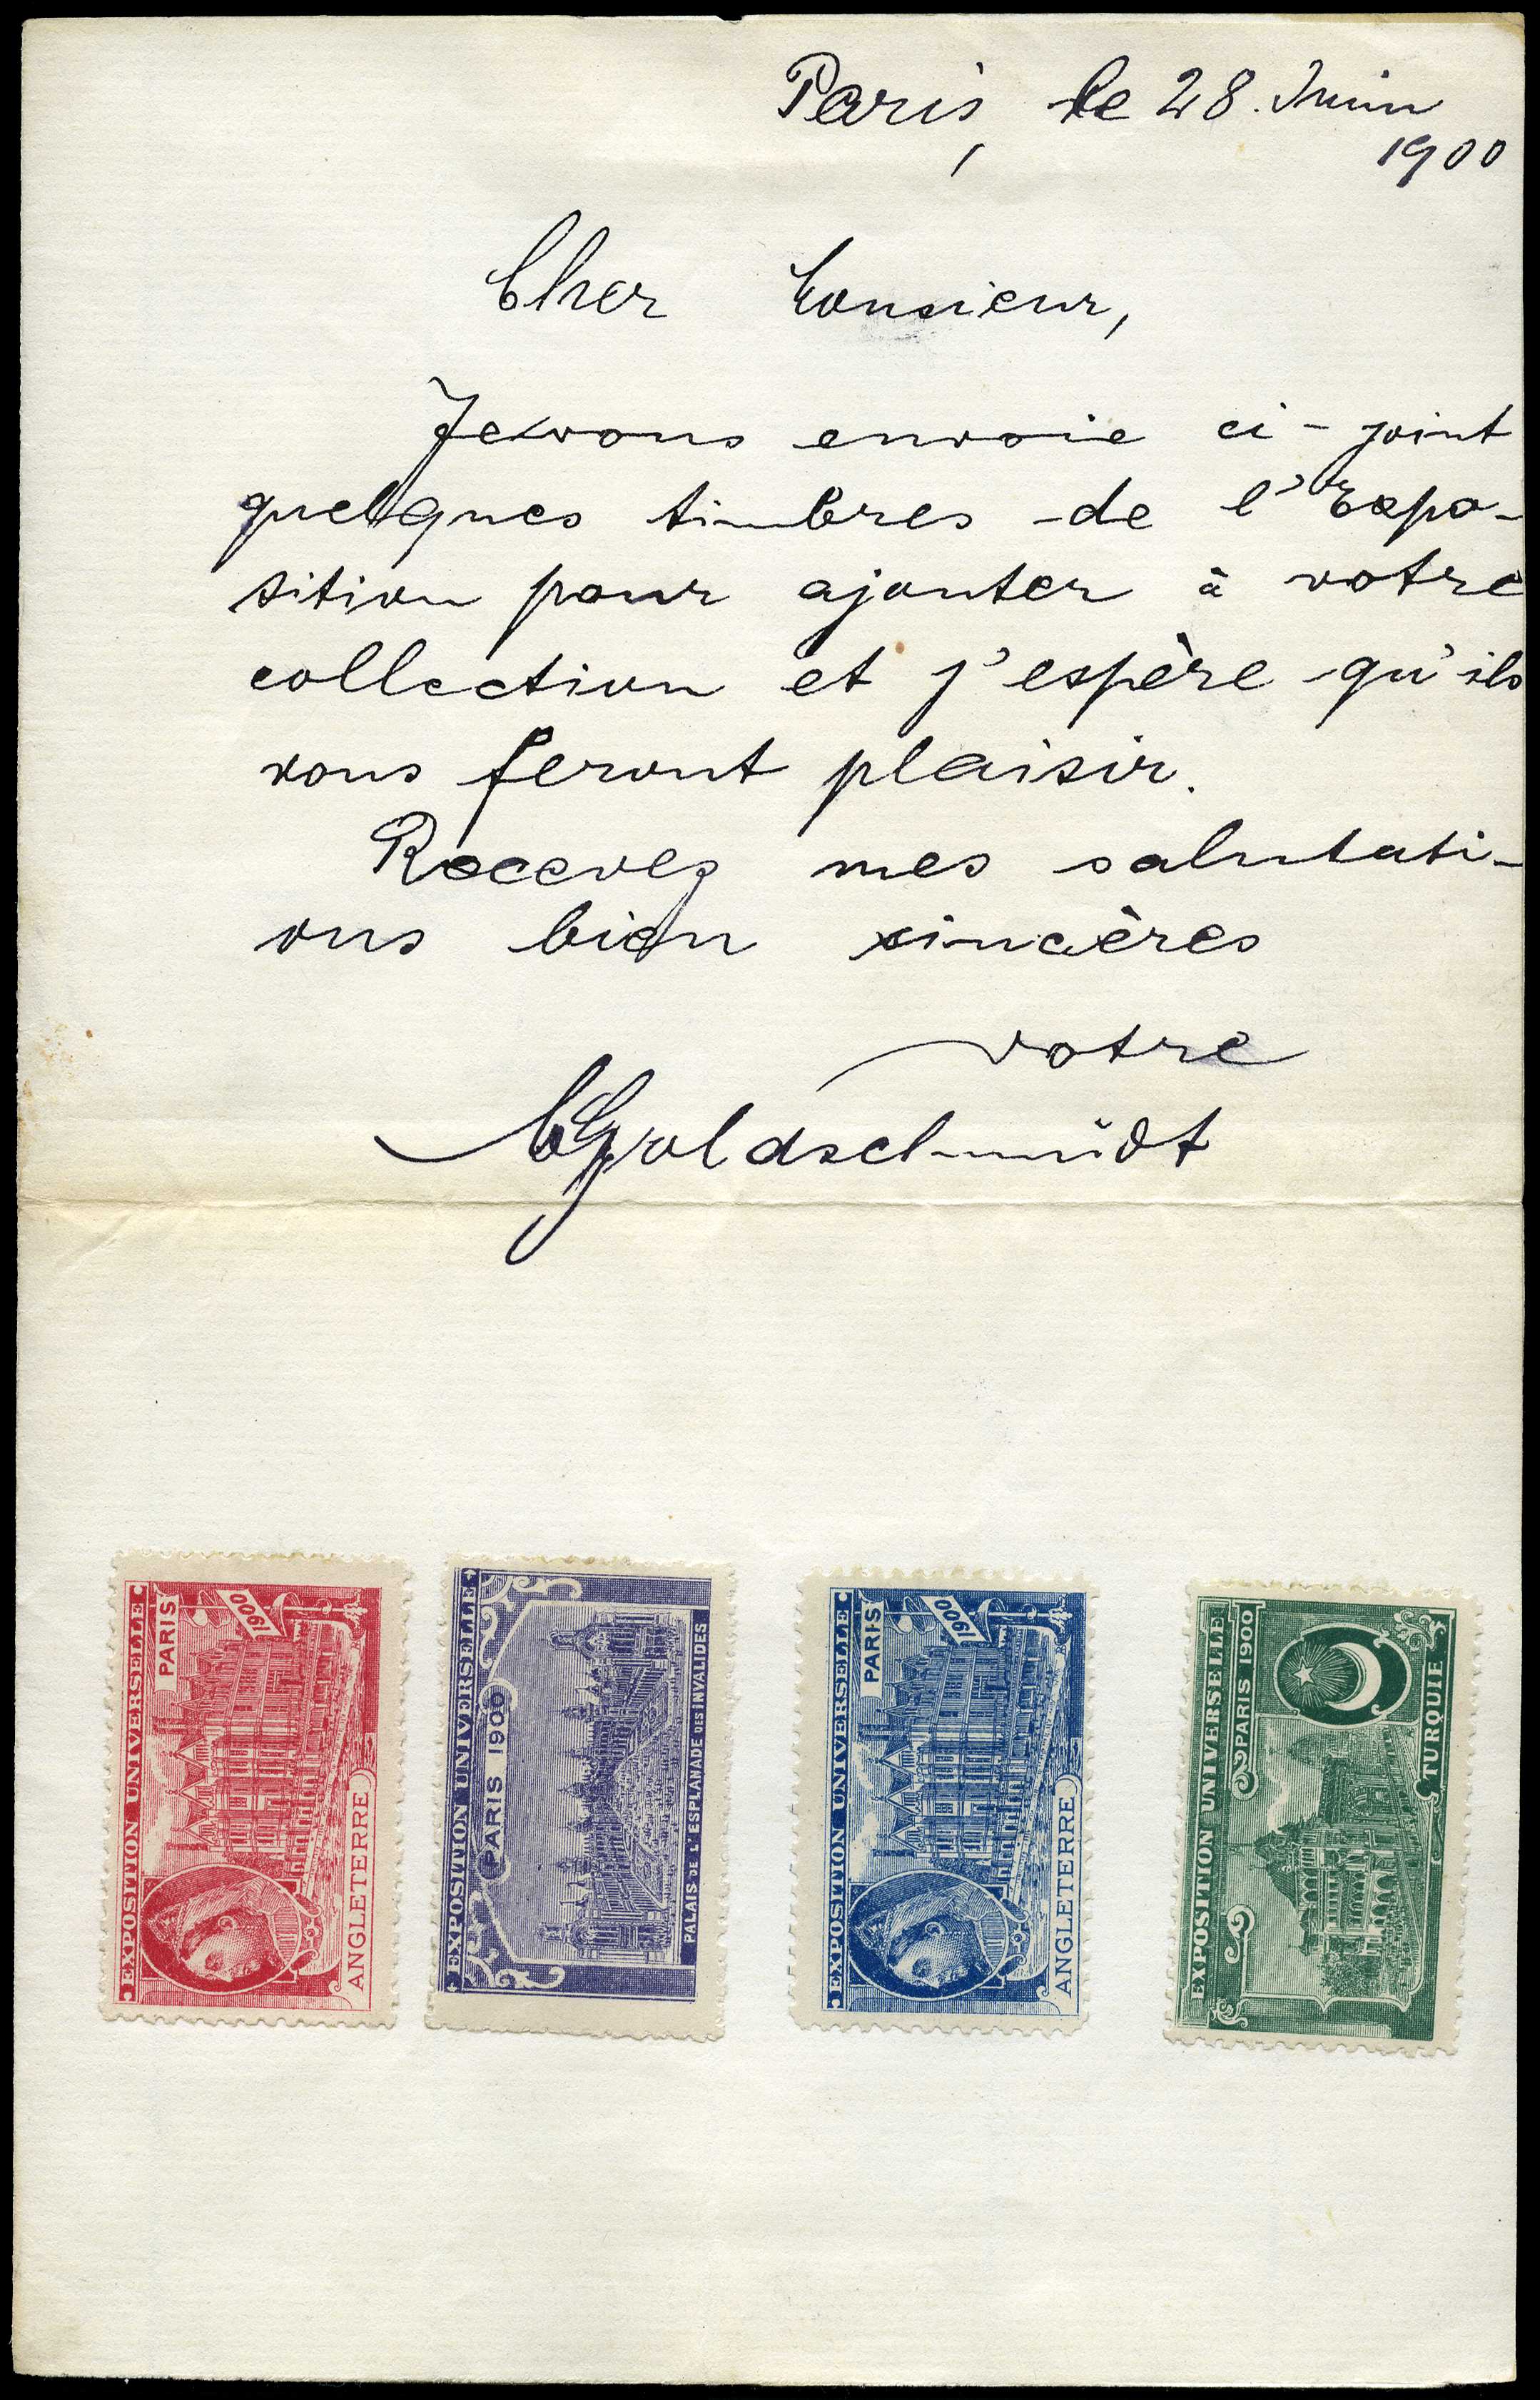 Paris, le 28. Juin
1900
Cher Monsieur,
Je vous envoie ci-joint
quelques timbres de l'Expo-
sition pour ajouter à votre
collection et j'espère qu'ils
vous feront plaisir.
Recevez mes salutati-
ons bien sincères
votre
Goldschmidt
EXPOSITION UNIVERSELLE
PARIS
1900
ANGLETERRE
EXPOSITION UNIVERSELLE
PARIS 1900
PALAIS DE L'ESPLANADE DES INVALIDES
EXPOSITION UNIVERSELLE
PARIS
1900
ANGLETERRE
EXPOSITION UNIVERSELLE
PARIS 1900
TURQUIE